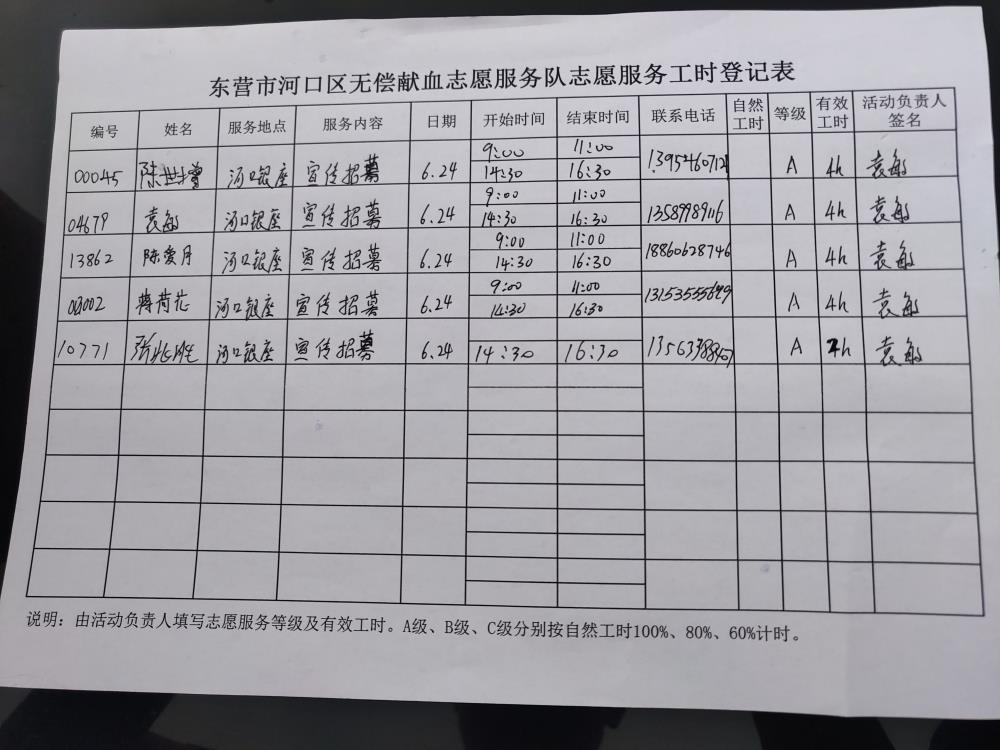 东营市河口区无偿献血志愿服务队志愿服务工时登记表
编号 姓名 服务地点 服务内容 日期 开始时间 结束时间 联系电话 自然工时 等级 有效工时 活动负责人签名
00045 陈世增 河口银座 宣传招募 6.24 9:00 11:00 A 4h 袁敏
14:30 16:30
04679 袁敏 河口银座 宣传招募 6.24 9:00 11:00 13589989116 A 4h 袁敏
14:30 16:30
13862 陈爱月 河口银座 宣传招募 6.24 9:00 11:00 18860628746 A 4h 袁敏
14:30 16:30
河口银座 宣传招募 6.24 9:00 11:00 A 4h 袁敏
14:30 16:30
10771 河口银座 宣传招募 6.24 14:30 16:30 A 2h 袁敏
说明：由活动负责人填写志愿服务等级及有效工时。A级、B级、C级分别按自然工时100%、80%、60%计时。